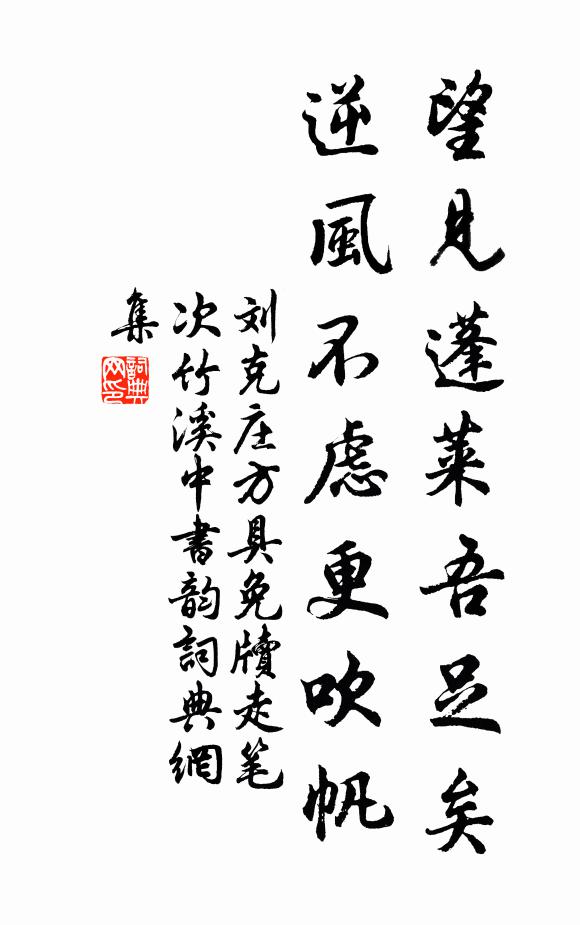 望見蓬萊吾足矣
逆風不慮更吹帆
刘克庄方具免牘走笔
次竹溪中書韵詞典網
集
詞典
网印